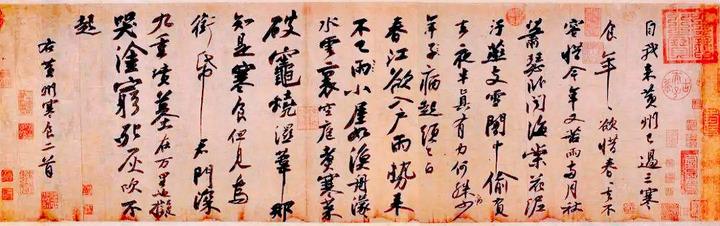 自我来黄州已過三寒
食年〻欲惜春〻去不
容惜今年又苦雨兩月秋
蕭瑟卧聞海棠花泥
汙燕支雪闇中偷負
去夜半真有力何殊少
年子病起頭已白
春江欲入户雨勢来
不已雨小屋如漁舟濛〻
水雲裏空庖煑寒菜
破竈燒濕葦那
知是寒食但見烏
銜帋君門深
九重墳墓在万里也擬
哭塗窮死灰吹不
起
右黄州寒食二首